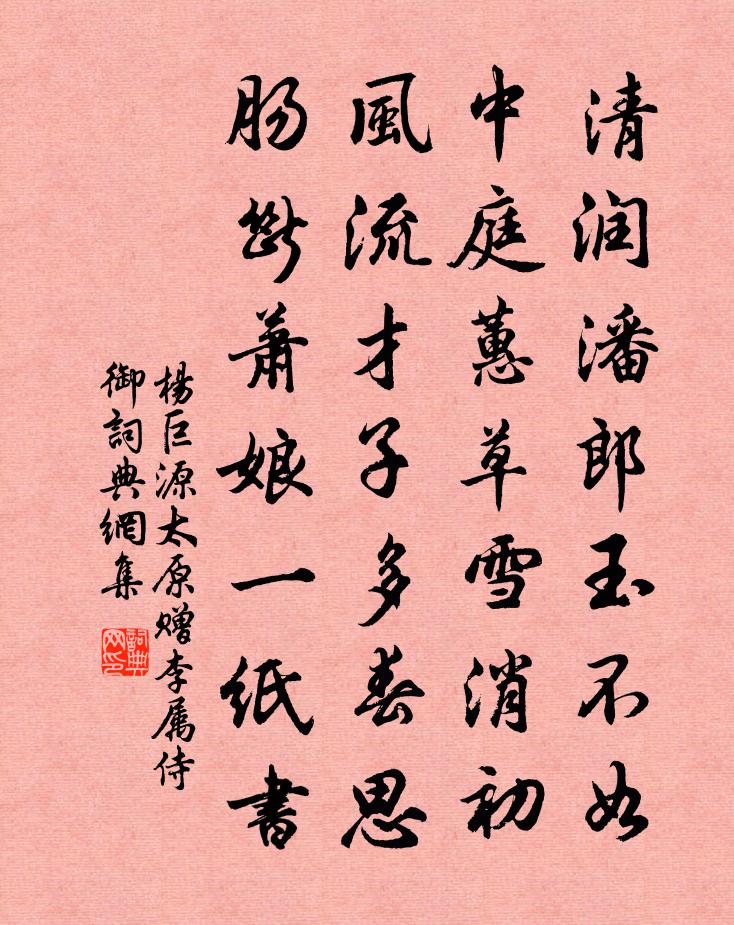 清润潘郎玉不如
中庭蕙草雪消初
風流才子多春思
肠斷萧娘一紙書
楊巨源太原赠李属侍
御詞典網集
詞典网印